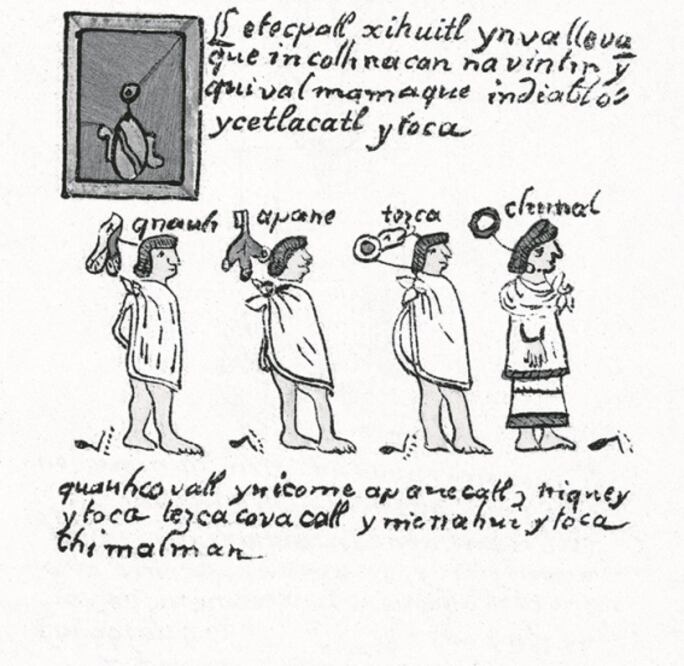 ce tecpatl xihuitl ynvalleva
que in colhuacan navintin y
quivalmamaque indiablos
ycetlacatl ytoca
quauh apane tezca chimal
quauhcovatl ynicome apanecatl yniquey
ytoca tezcacovacatl ynicnahui ytoca
chimalman